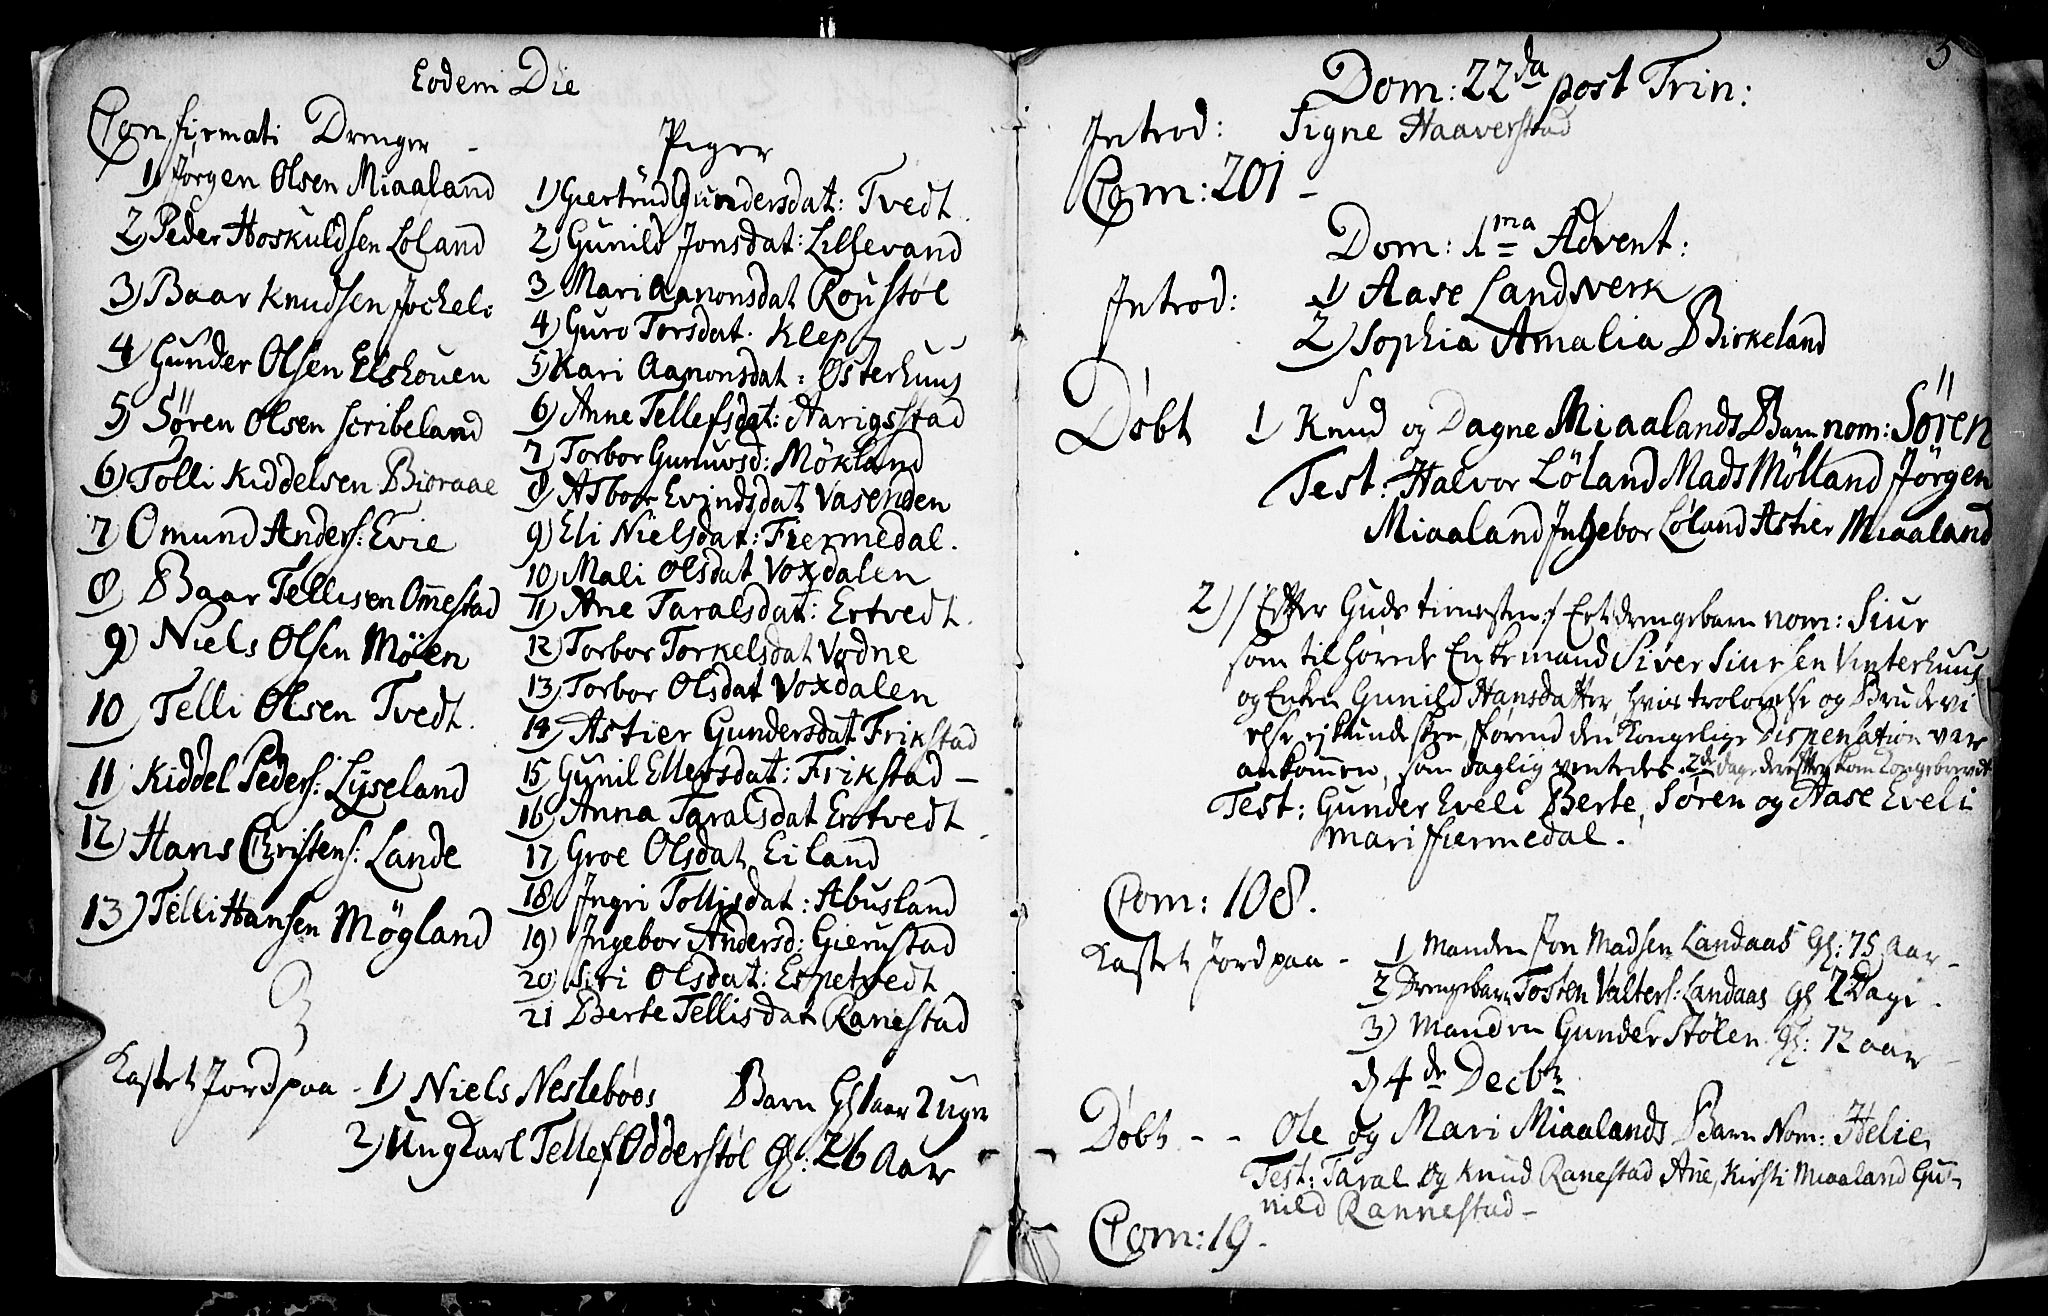 Eodem Die
Confirmati Drenger -
1) Jørgen Olsen Miaaland
2) Peder Hoskuldsen Loland
3) Baar Knudsen Jocheli
4 Gunder Olsen Elshouen
5) Søren Olsen Scribeland
6) Tolli Kiddelsen Bioraae
7 Omund Anders: Evie
8 Baar Tellisen Omestad
9) Niels Olsen Möen
10 Telli Olsen Tvedt.
11 Kiddel Peders: Lyseland
12) Hans Christens: Lande
13) Telli Hansen Mögland
Piger
1) Giertrud Gundersdat: Tvedt.
2) Gunild Jonsdat: Lillevand
3 Mari Aanonsdat Roustøl
4) Guro Torsdat. Klep
5) Kari Aanonsdat: Osterhuus
6) Anne Tellefsdat: Aarigsstad
7 Torbor Gunuvsd: Mökland
8) Asbor Evindsdat Vasenden
9) Eli Nielsdat: Fiermedal.
10) Mali Olsdat Voxdalen
11) Ane Taralsdat: Ertvedt.
12) Torbor Torkelsdat Vodne
13) Torbor Olsdat Voxdalen
14) Astier Gundersdat Frikstad
15 Gunil Ellersdat: Frikstad -
16) Anna Taralsdat Ertvedt
17 Groe Olsdat Eiland
18) Ingri Tollisdat: Abusland
19) Ingebor Andersd: Gierustad
20) Siri Olsdat: Espetvedt
21 Berte Tellisdat Ranestad
Kastet Jord paa - 1) Niels Neslebøes Barn Gl: 1 aar 2 uger
2) Ung Karl Tellef Odderstøl Gl: 26 Aar
5
Dom: 22da post Trin:
Introd: Signe Haaverstad
Com: 201 -
Dom: 1ma Advent:
Introd: 1) Aase Landsverk
2) Sophia Amalia Birkeland
Døbt 1) Knud og Dagne Miaalands Barn nom: Søren
Test: Halvor Löland Mads Mölland Jørgen
Miaaland Ingebor Løland Astier Miaaland
2) /: Efter Guds tienesten :/ Et drengebarn nom: Siur
som tilhørde Enkemand Siver Siursen Vinterhuus
og Enken Gunild Hansdatter, hvis trolovelse og Brudevi
else ej kunde skee, førend den Kongelige Dispensation var
ankommen, som daglig ventedes. 2de dage derefter kom Kongebrevet
Test: Gunder Eveli Berte, Søren og Aase Eveli
Mari Fiermedal.
Com: 108.
Kastet Jord paa - 1 Manden Jon Madsen Landaas Gl: 75 Aar -
2 Drengebarn Tosten Valters: Landaas Gl 2 Dage.
3) Manden Gunder Stølen Gl: 72 aar -
d 4de Decbr
Døbt - - Ole og Mari Miaalands Barn Nom: Helie
Test: Taral og Knud Ranestad Ane, Kirsti Miaaland Gu-
nild Rannestad -
Com: 19 -